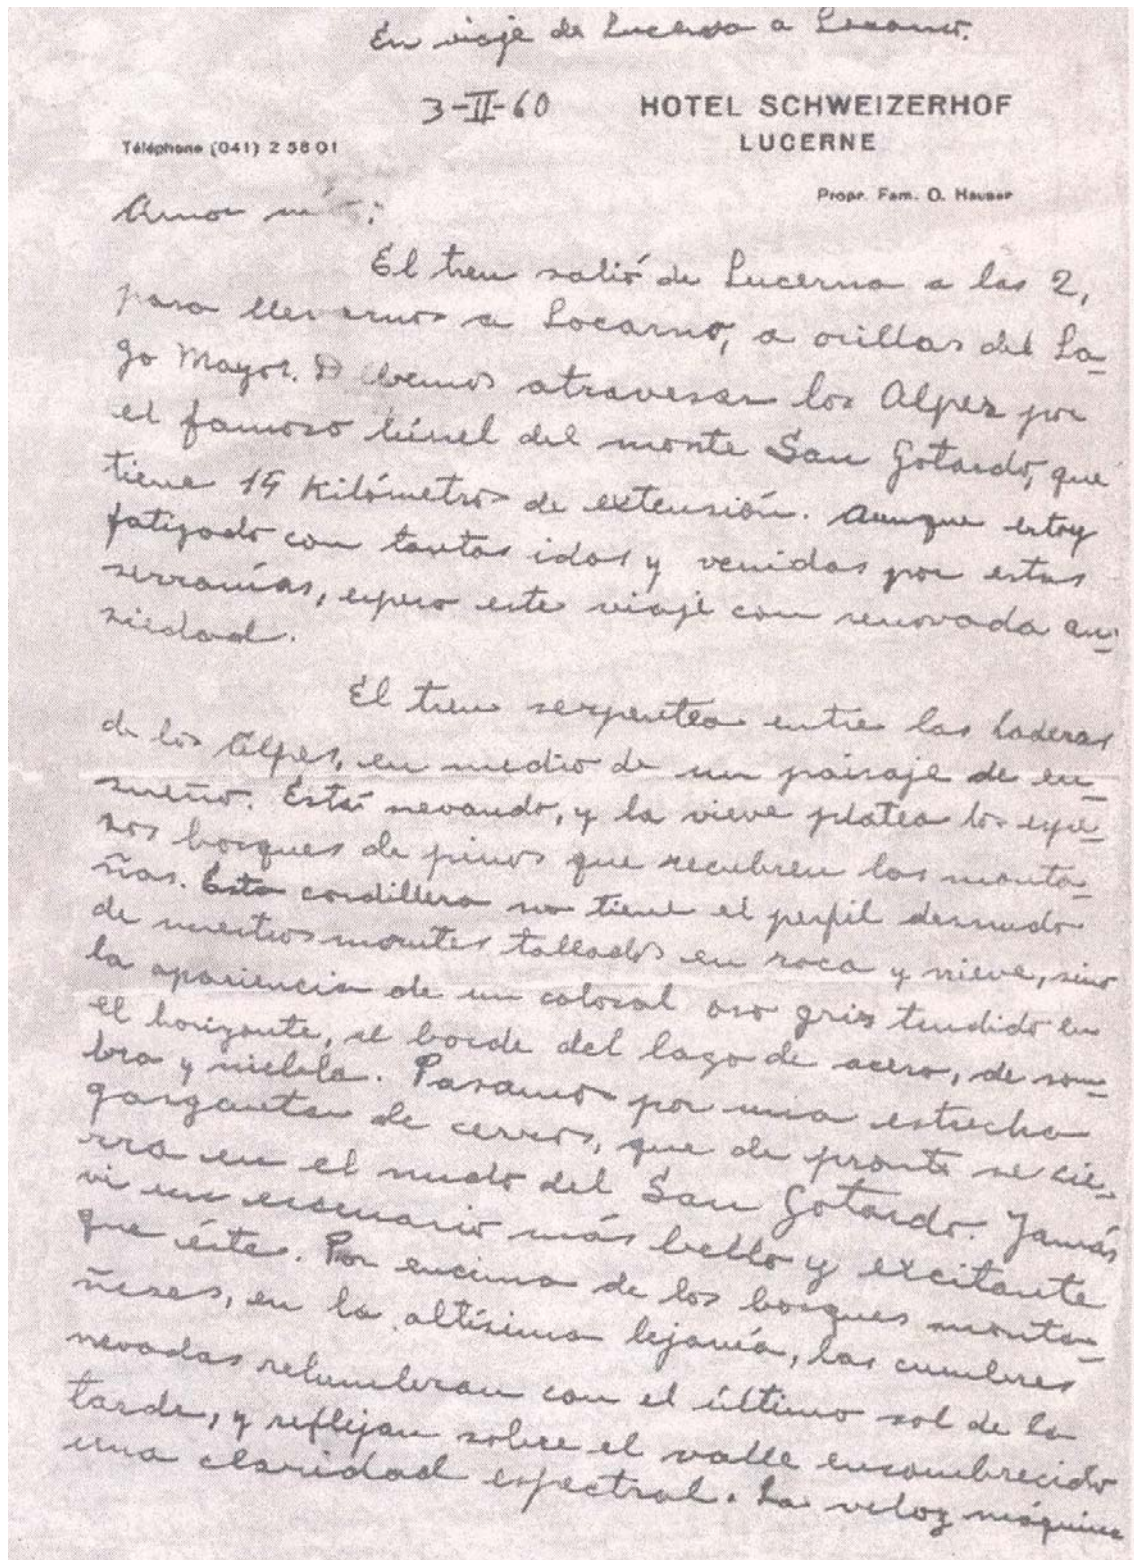 En viaje de Lucerna a Locarno.
3-II-60
HOTEL SCHWEIZERHOF
LUCERNE
Téléphone (041) 2 58 01
Propr. Fam. O. Hauser
Amor mío:
El tren salió de Lucerna a las 2,
para llevarnos a Locarno, a orillas del La-
go Mayor. Debemos atravesar los Alpes por
el famoso túnel del monte San Gotardo, que
tiene 15 Kilómetros de extensión. Aunque estoy
fatigado con tantas idas y venidas por estas
serranías, espero este viaje con renovada an-
siedad.
El tren serpentea entre las laderas
de los Alpes, en medio de un paisaje de en-
sueño. Está nevando, y la nieve platea los espe-
sos bosques de pinos que recubren las monta-
ñas. Esta cordillera no tiene el perfil desnudo
de nuestros montes tallados en roca y nieve, sino
la apariencia de un colosal oso gris tendido en
el horizonte, al borde del lago de acero, de som-
bra y niebla. Pasamos por una estrecha
garganta de cerros, que de pronto se cie-
rra en el nudo del San Gotardo. Jamás
vi un escenario más bello y excitante
que éste. Por encima de los bosques monta-
ñeses, en la altísima lejanía, las cumbres
nevadas relumbran con el último sol de la
tarde, y reflejan sobre el valle ensombrecido
una claridad espectral. La veloz máquina